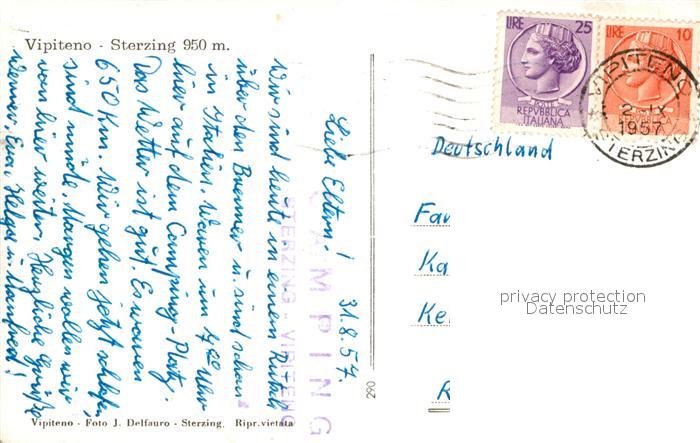 Vipiteno - Sterzing 950 m.
Liebe Eltern! 31.8.57.
Wir sind heute in einem Rutsch
über den Brenner u. sind schon
in Italien. Waren um 4⁰⁰ Uhr
hier auf dem Camping-Platz.
Das Wetter ist gut. Es waren
650 Km. Wir gehen jetzt schlafen,
sind müde. Morgen wollen wir
von hier weiter. Herzliche Grüße
Werner, Eva, Helga u. Manfred!
CAMPING
STERZING - VIPITENO
Vipiteno - Foto J. Delfauro - Sterzing. Ripr. vietata
290
LIRE 25
POSTE
REPVBBLICA
ITALIANA
LIRE 10
REPVBBLICA
ITALIANA
VIPITENO
2-IX
1957
STERZING
Deutschland
Fa
Ka
Ke
R
privacy protection
Datenschutz